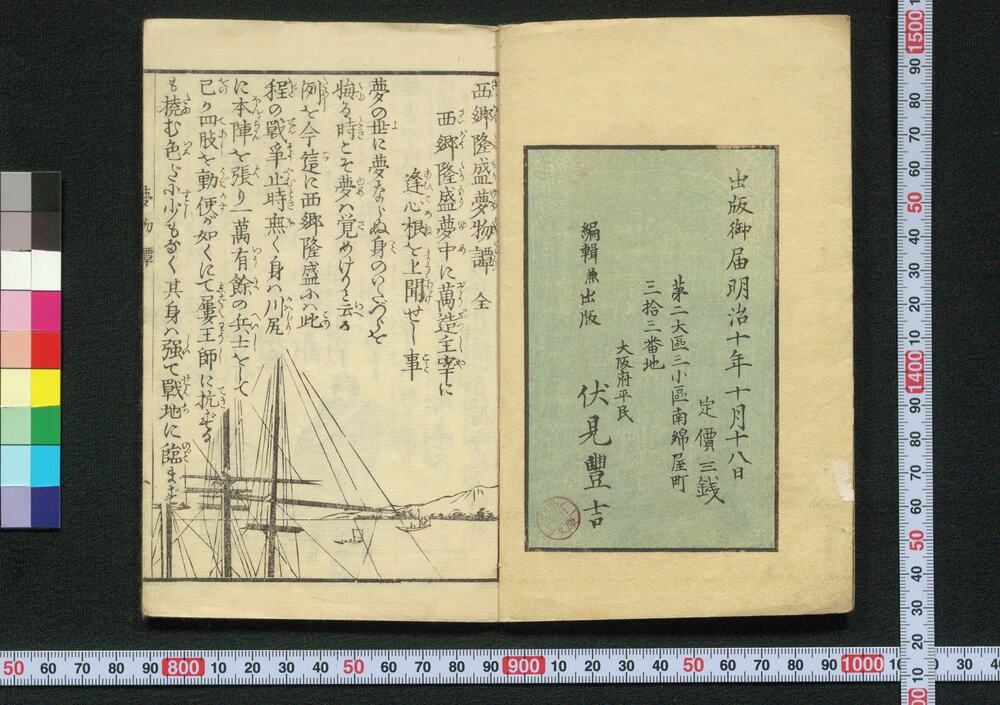 出版御届明治十年十月十八日
定價三銭
第二大區三小區南綿屋町
三拾三番地
大阪府平民
編輯兼出版
伏見豐吉
西郷隆盛夢物譚 全
西郷隆盛夢中に萬造主宰に
逢心根を上聞せし事
夢の世に夢ならぬ身の
悔る時とぞ夢ハ覚めけりと云る
例を今茲に西郷隆盛ハ此
程の戰爭止時無く身ハ川尻
に本陣を張り一萬有餘の兵士をして
己が四肢を動便が如くにて屢王師に抗ずる
も撓む色だに小少もなく其身ハ强て戰地に臨まず
夢物譚
50 60 70 80 90 800 10 20 30 40 50 60 70 80 90 900 10 20 30 40 50 60 70 80 90 1000 10 20 30
1500 90 80 70 60 50 40 30 20 10 1400 90 80 70 60 50 40 30 20 10